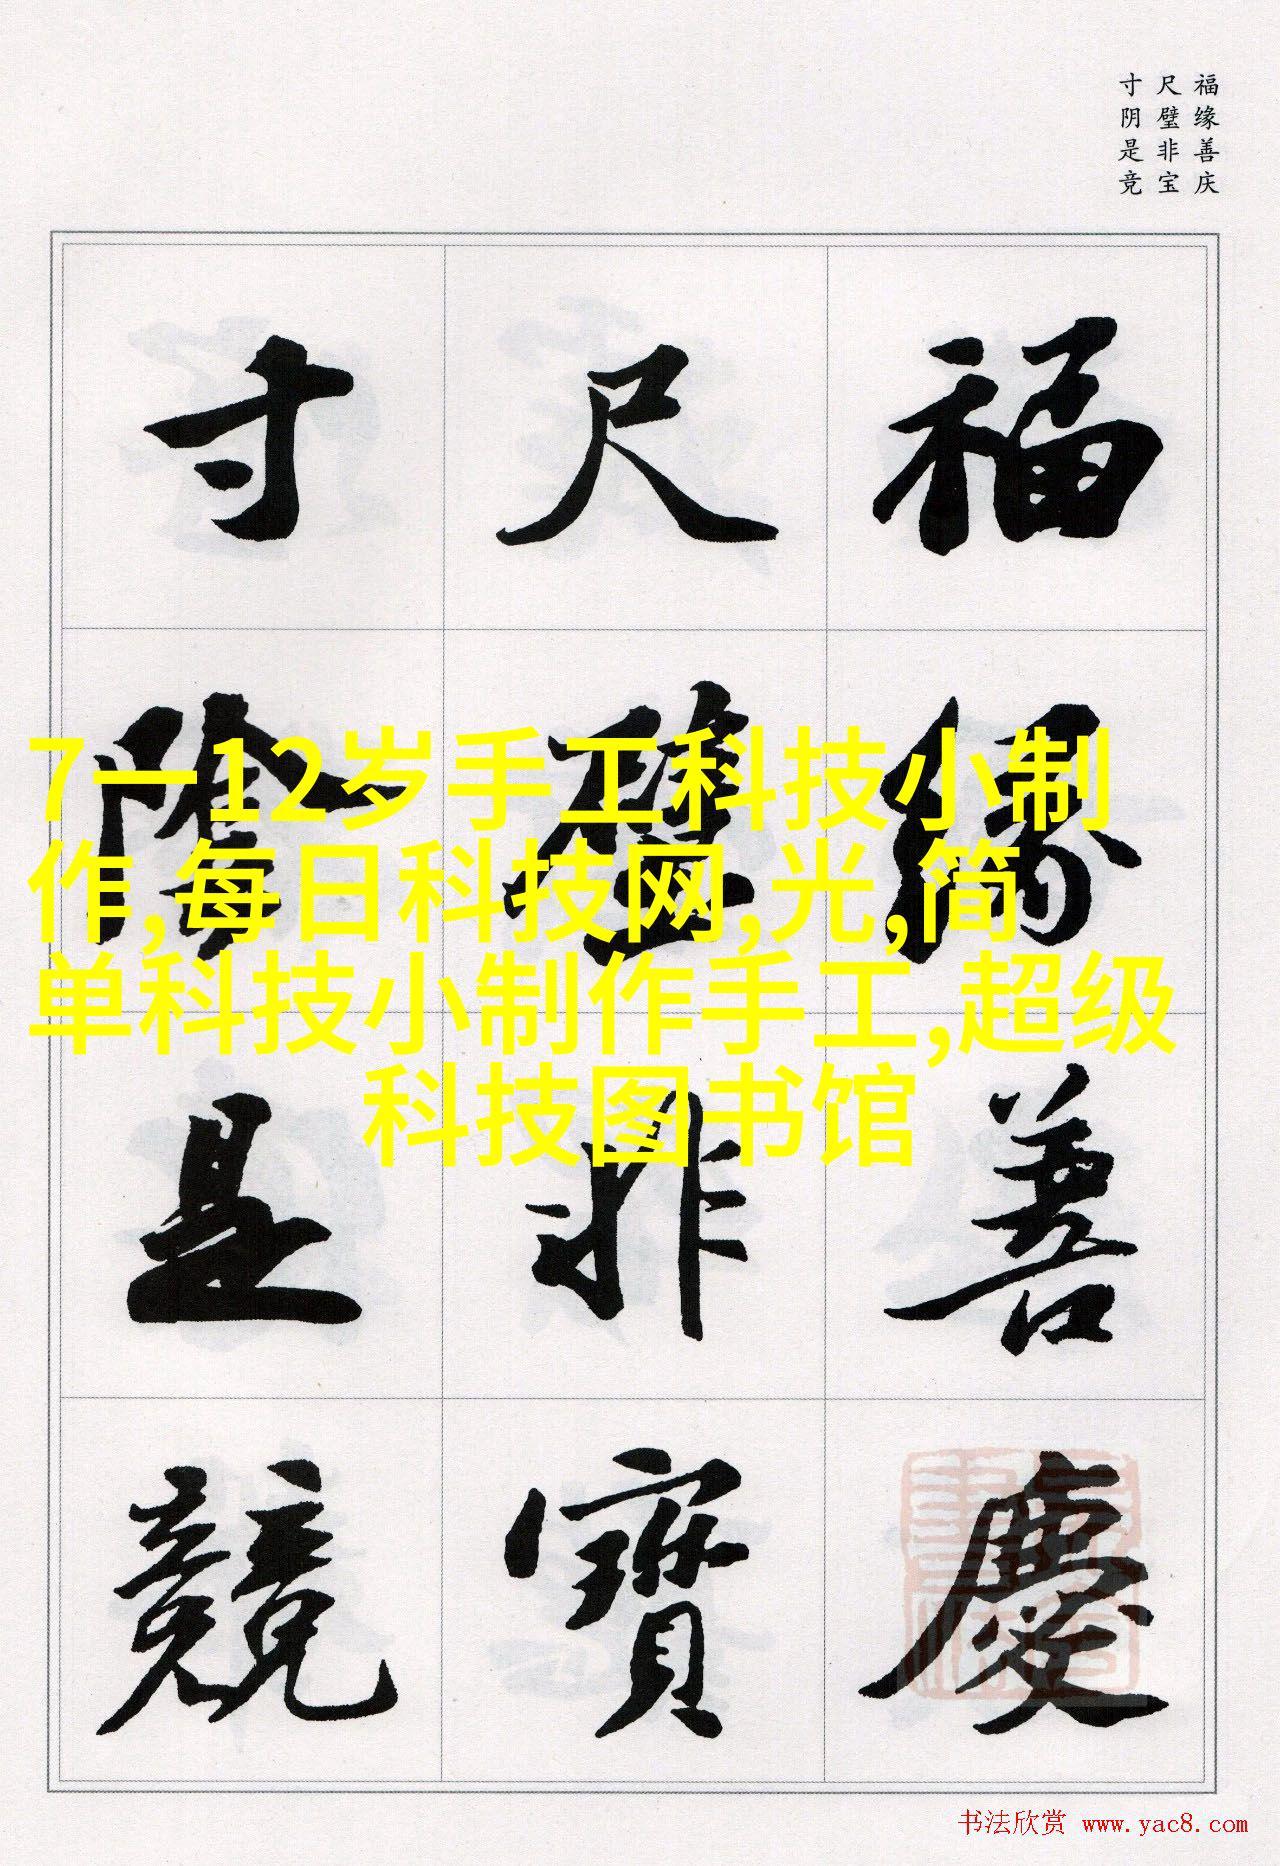 福缘善庆
尺璧非宝
寸阴是竞
福緣善慶
尺璧非寶
寸陰是競
7一12岁手工科技小制
作,每日科技网,光,简
单科技小制作手工,超级
科技图书馆
书法欣赏 www.yac8.com